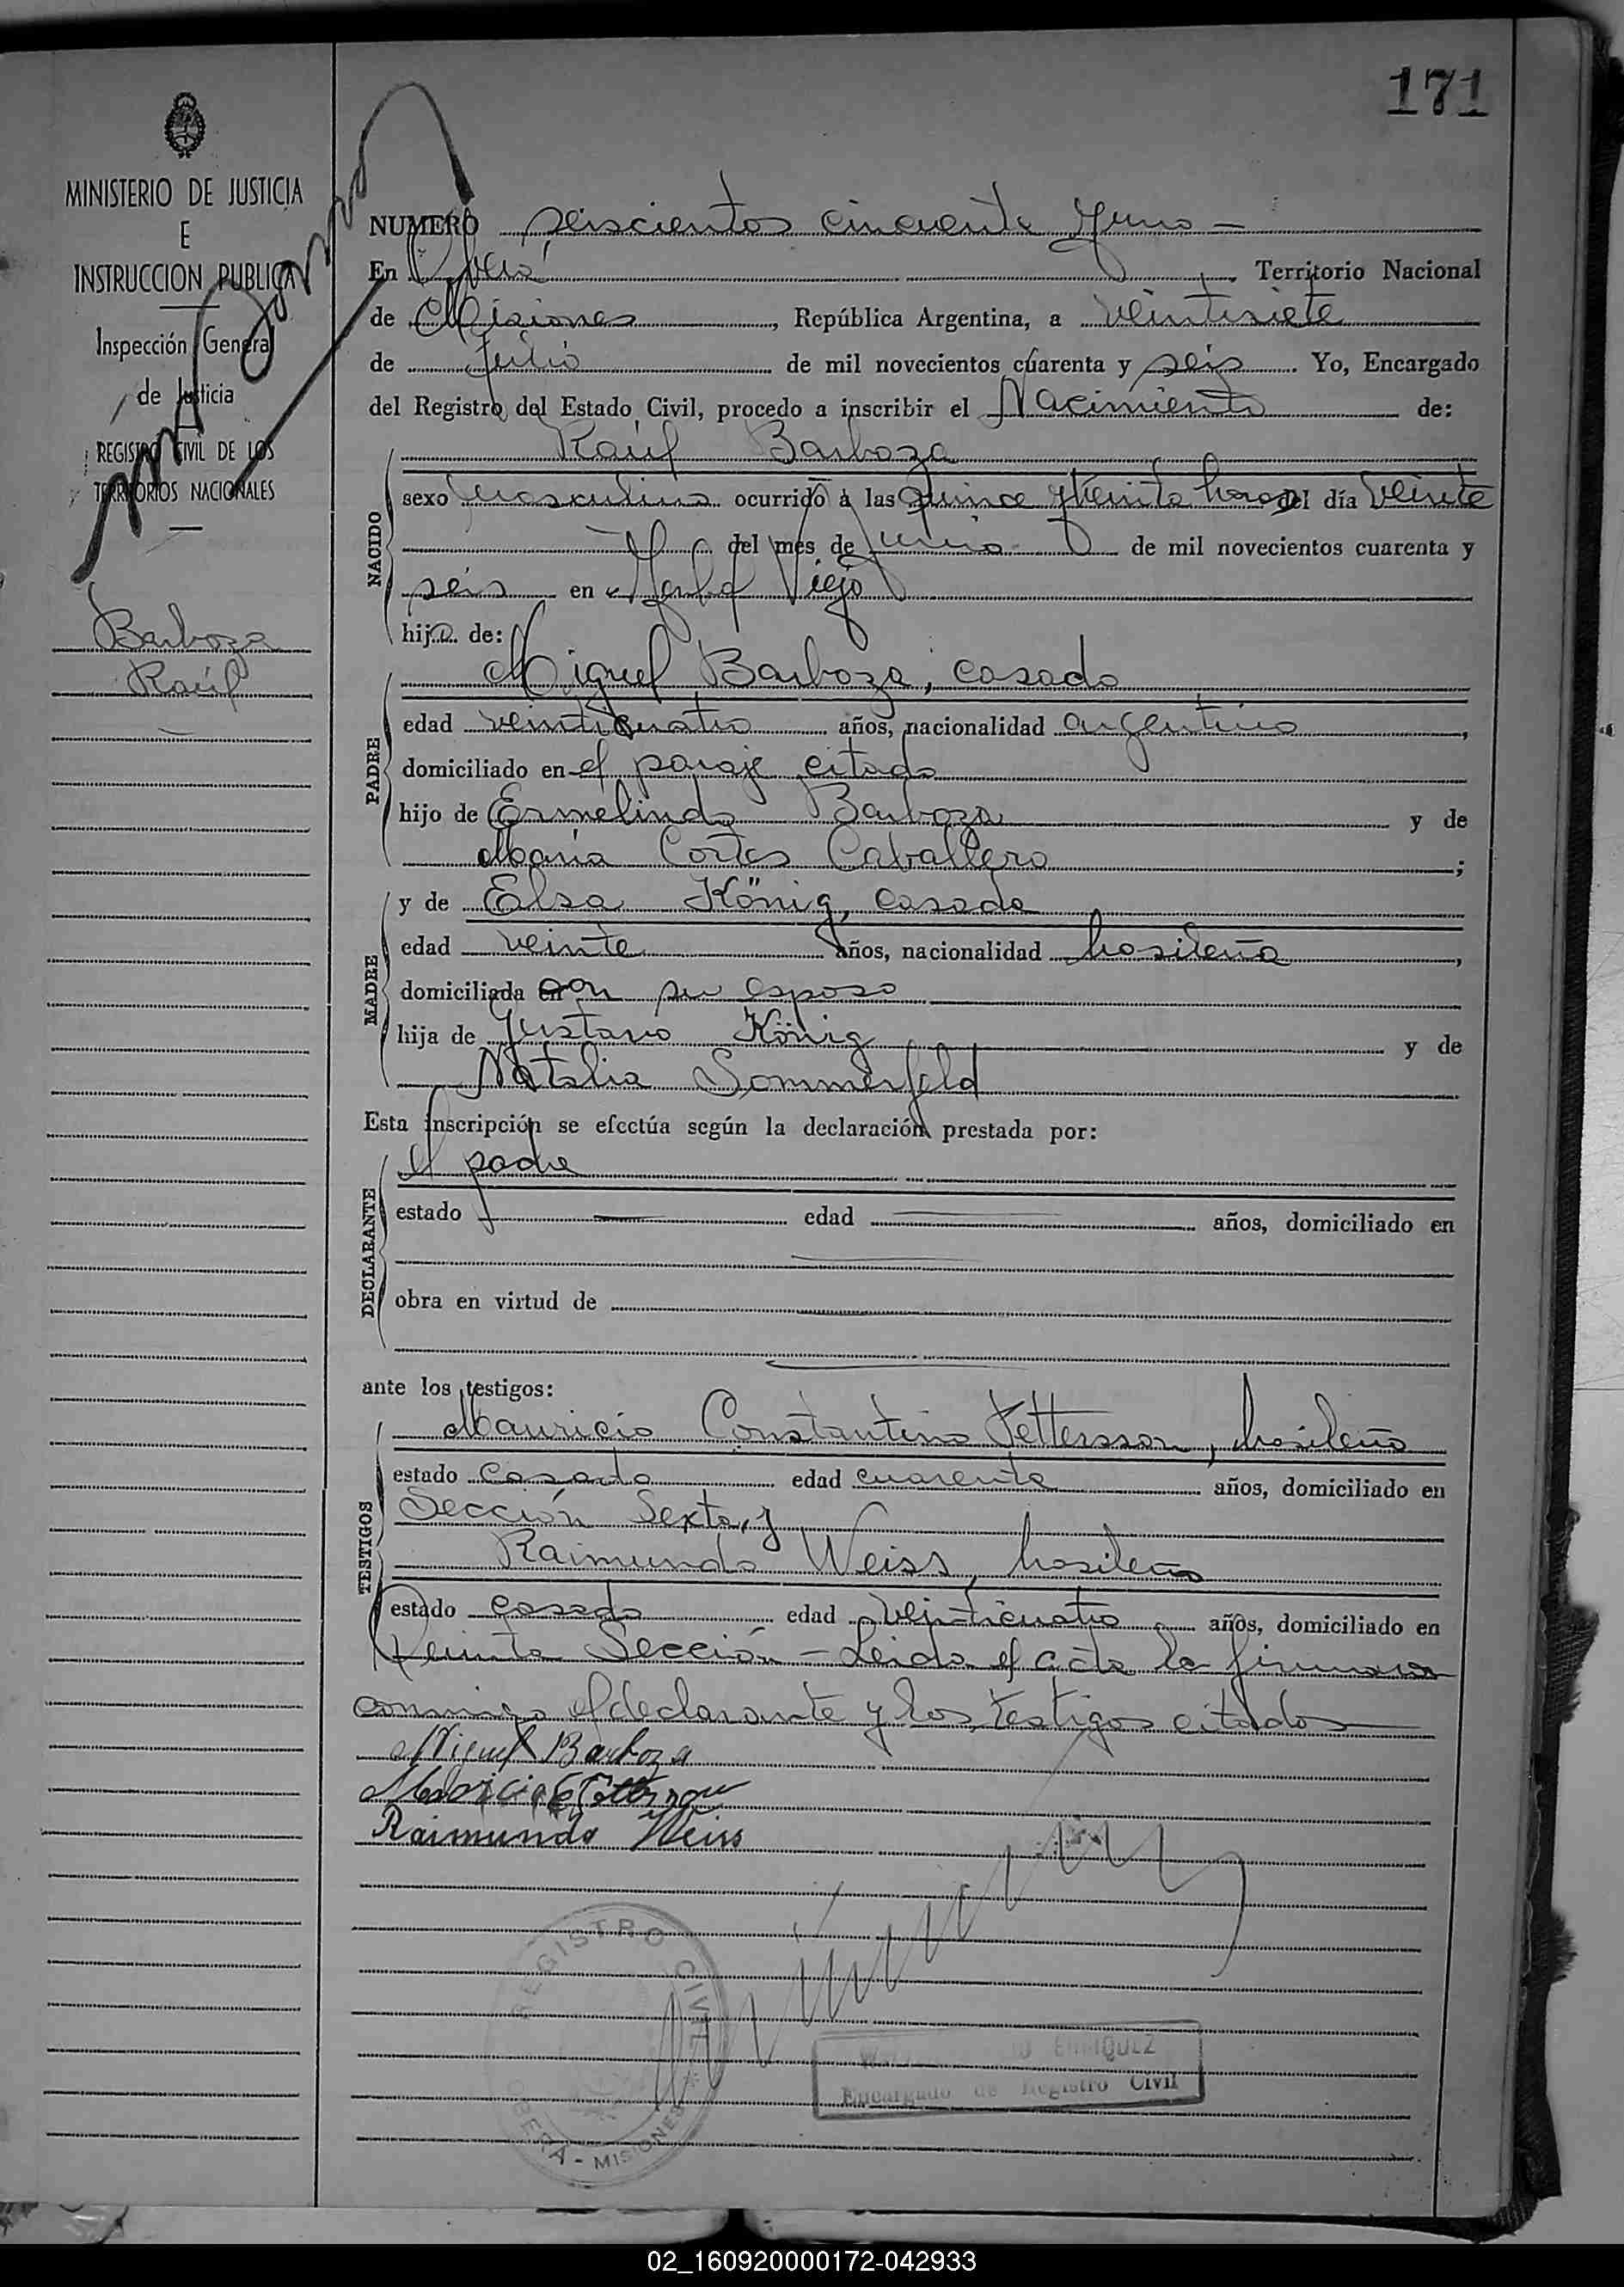 171
MINISTERIO DE JUSTICIA
E
INSTRUCCION PUBLICA
Inspección General
de Justicia
REGISTRO CIVIL DE LOS
TERRITORIOS NACIONALES
Barboza
Raúl
NUMERO seiscientos cincuenta y uno -
En Oberá Territorio Nacional
de Misiones, República Argentina, a veintisiete
de julio de mil novecientos cuarenta y seis. Yo, Encargado
del Registro del Estado Civil, procedo a inscribir el Nacimiento de:
Raúl Barboza
NACIDO
sexo masculino ocurrido a las quince y treinta horas del día veinte
del mes de junio de mil novecientos cuarenta y
seis en Yerbal Viejo
hijo de:
Miguel Barboza, casado
PADRE
edad veinticuatro años, nacionalidad argentino,
domiciliado en el paraje citado
hijo de Ermelindo Barboza y de
María Cortes Caballero;
MADRE
y de Elsa König, casada
edad veinte años, nacionalidad brasileña,
domiciliada con su esposo
hija de Gustavo König y de
Natalia Sommerfeld
Esta inscripción se efectúa según la declaración prestada por:
el padre
DECLARANTE
estado edad años, domiciliado en
obra en virtud de
ante los testigos:
Mauricio Constantino Pettersson, brasileño
TESTIGOS
estado casado edad cuarenta años, domiciliado en
Sección Sexta, y
Raimundo Weiss, brasileño
estado casado edad veinticuatro años, domiciliado en
Quinta Sección - Leida el acta la firmaron
conmigo el declarante y los testigos citados
Miguel Barboza
Raimundo Weiss
REGISTRO CIVIL
OBERÁ - MISIONES
ENRIQUEZ
Encargado de Registro Civil
02_160920000172-042933